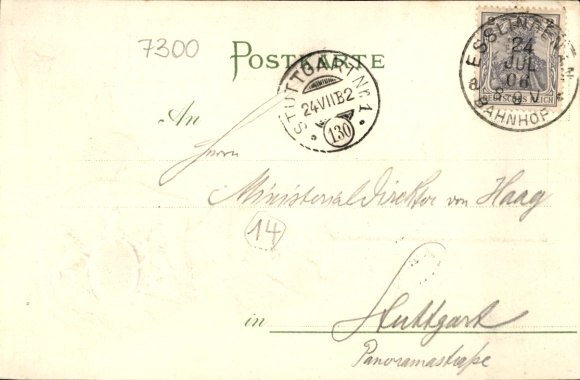 7300
POSTKARTE
ESSLINGEN a. N.
24
JUL
06
BAHNHOF
DEUTSCHES REICH
STUTTGART Nr. 1
24 VII B2
130
An
Herrn
Ministerialdirektor von Haag
14
in Stuttgart
Panoramastraße